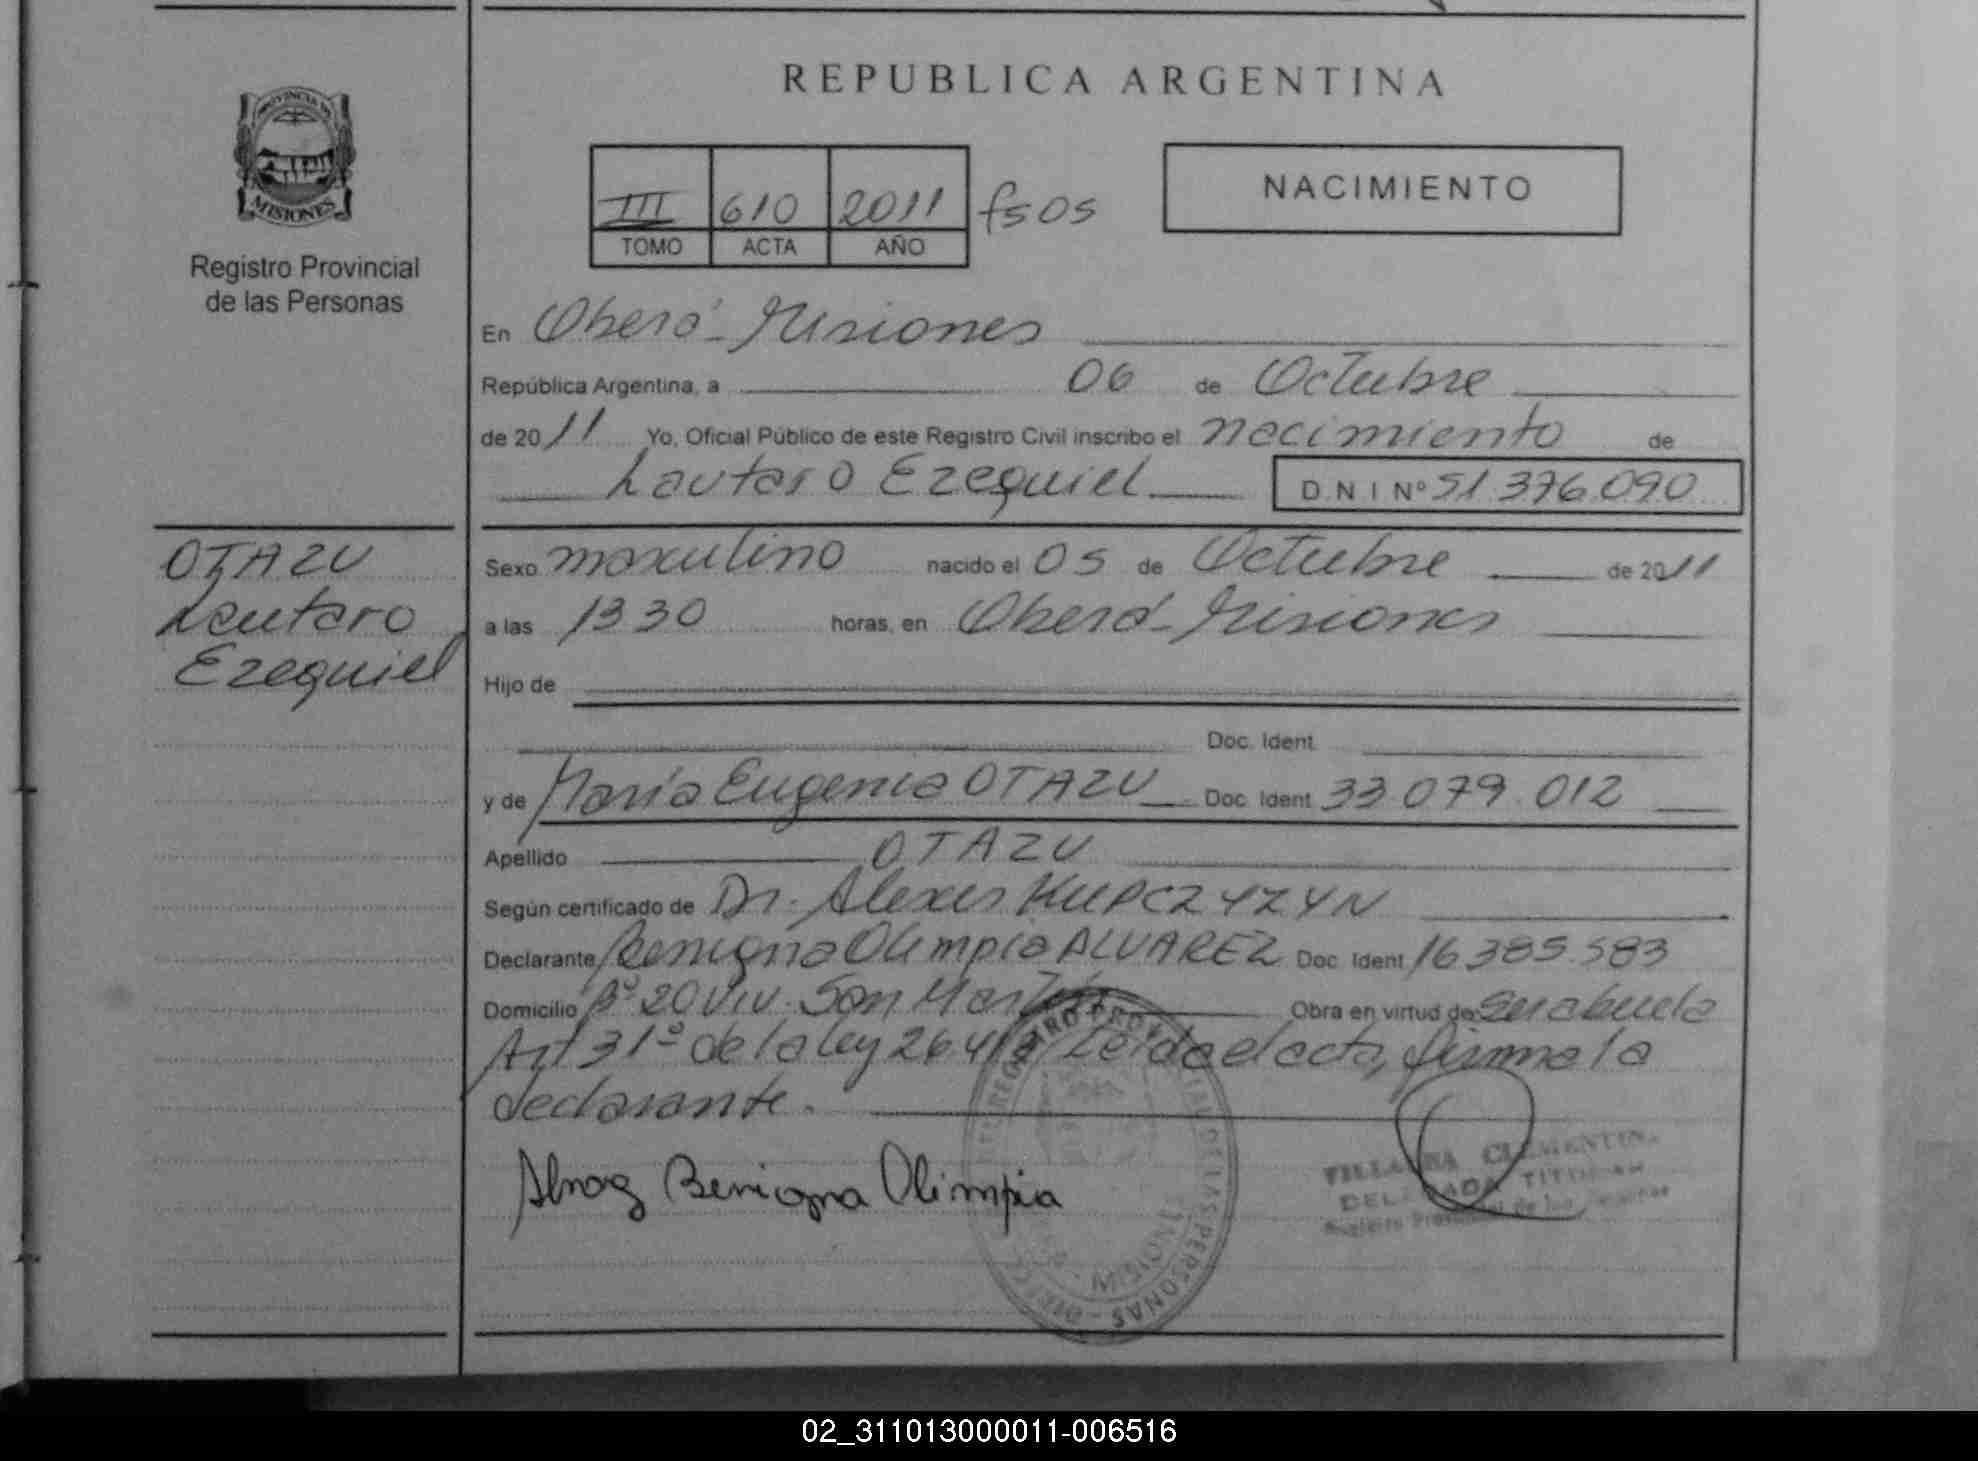 REPUBLICA ARGENTINA
PROVINCIA DE
MISIONES
Registro Provincial
de las Personas
III 610 2011 fs 05
TOMO ACTA AÑO
NACIMIENTO
En Oberá - Misiones
República Argentina, a 06 de Octubre
de 2011 Yo, Oficial Público de este Registro Civil inscribo el nacimiento de
Lautaro Ezequiel D.N.I Nº 51.376.090
OTAZU
Lautaro
Ezequiel
Sexo masculino nacido el 05 de Octubre de 2011
a las 13 30 horas, en Oberá - Misiones
Hijo de
Doc. Ident.
y de María Eugenia OTAZU Doc. Ident 33.079.012
Apellido OTAZU
Según certificado de Dr. Alexis KUPCZYZYN
Declarante Benigna Olimpia ALVAREZ Doc. Ident 16.385.583
Domicilio Bº 20 Viv. San Martín Obra en virtud de: su abuela
Art 31º de la ley 26413 Leída el acta, firma la
declarante.
Benigna Olimpia
REGISTRO PROVINCIAL DE LAS PERSONAS
MISIONES
VILLALBA CLEMENTINA
DELEGADA TITULAR
Registro Provincial de las Personas
02_311013000011-006516